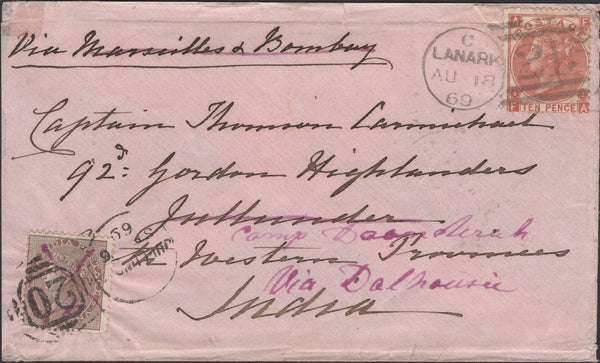 Via Marseilles & Bombay
C
LANARK
AU 18
69
POSTAGE
TEN PENCE
Captain Thomson Carmichael
92d Gordon Highlanders
Jullunder
Camp
N Western Provinces
Via Dalhousie
India